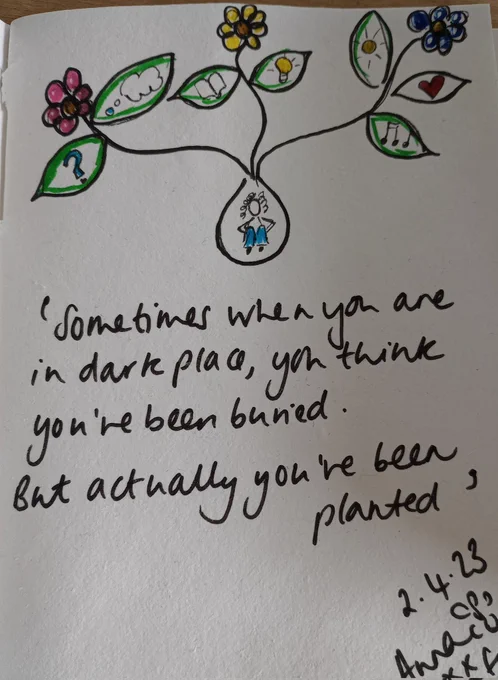 ?
'Sometimes when you are
in dark place, you think
you've been buried.
But actually you've been
planted'
2.4.23